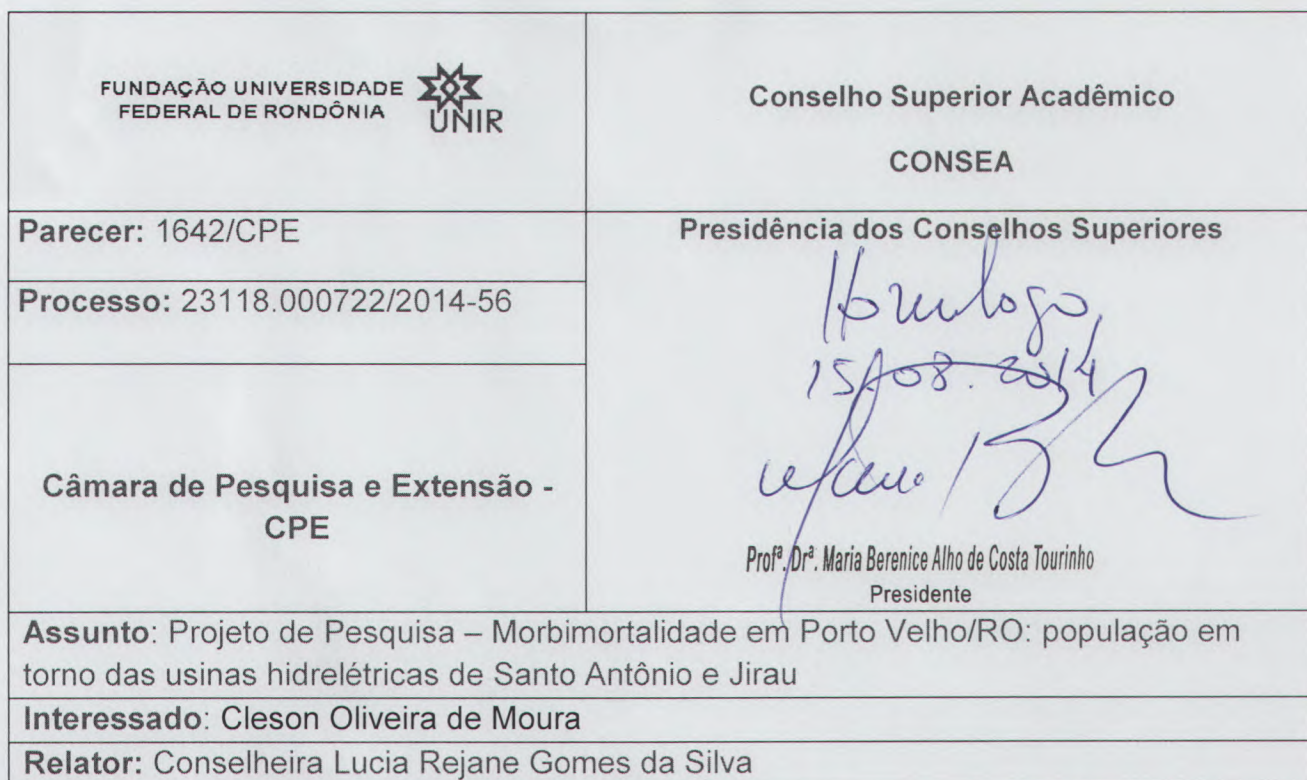 FUNDAÇÃO UNIVERSIDADE
FEDERAL DE RONDÔNIA
UNIR
Conselho Superior Acadêmico
CONSEA
Parecer: 1642/CPE
Processo: 23118.000722/2014-56
Câmara de Pesquisa e Extensão -
CPE
Presidência dos Conselhos Superiores
Homologo,
15/08.2014
Profª. Drª. Maria Berenice Alho de Costa Tourinho
Presidente
Assunto: Projeto de Pesquisa – Morbimortalidade em Porto Velho/RO: população em
torno das usinas hidrelétricas de Santo Antônio e Jirau
Interessado: Cleson Oliveira de Moura
Relator: Conselheira Lucia Rejane Gomes da Silva